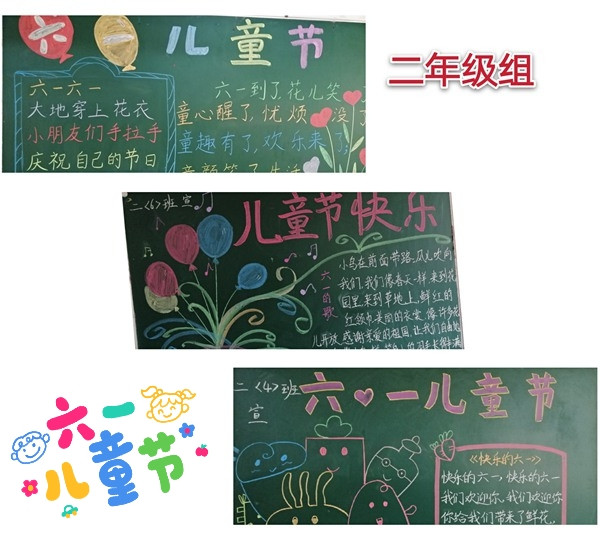 六一儿童节
六一六一
大地穿上花衣
小朋友们手拉手
庆祝自己的节日
六一到了花儿笑
童心醒了,忧烦没了
童趣有了,欢乐来了,
童颜笑了生活
二年级组
二〈6〉班 宣
儿童节快乐
六一的歌
小鸟在前面带路,风儿吹向
我们,我们像春天一样,来到花
园里,来到草地上,鲜红的
红领巾,美丽的衣裳,像许多花
儿开放,感谢亲爱的祖国,让我们自由地
二〈4〉班
宣
六一儿童节
《快乐的六一》
快乐的六一,快乐的六一
我们欢迎你,我们欢迎你
你给我们带来了鲜花,
六一
儿童节